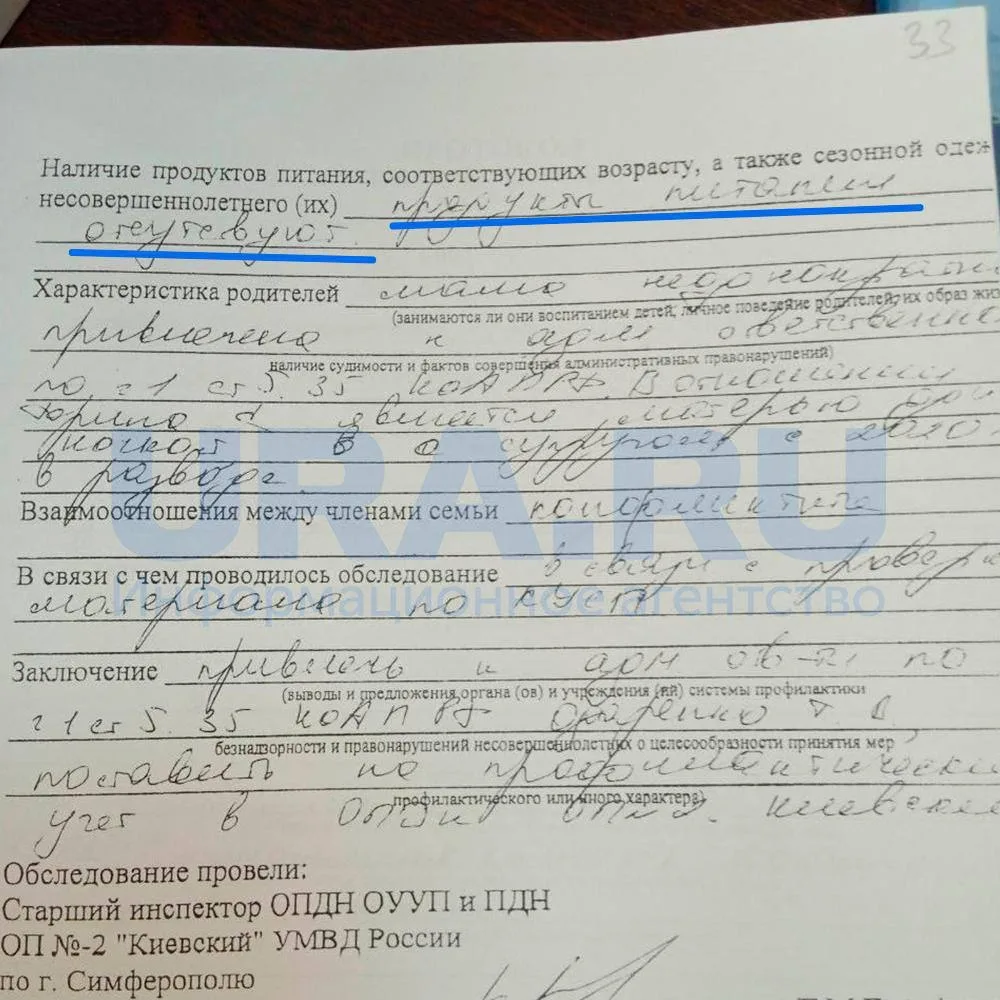 33
Наличие продуктов питания, соответствующих возрасту, а также сезонной одеж
несовершеннолетнего (их) продукты питания
отсутсвуют.
Характеристика родителей мама неоднократно
(занимаются ли они воспитанием детей, личное поведение родителей, их образ жиз
привлечена к адм ответственно
наличие судимости и фактов совершения административных правонарушений)
по ч 1 ст 5.35 КоАП РФ. В отношении
является матерью
с супругом с 2020
в разводе.
Взаимоотношения между членами семьи
В связи с чем проводилось обследование в связи с провер
материала по КУСП
URA.RU
Информационное агентство
Заключение привлечь к адм отв-ти по
(выводы и предложения органа (ов) и учреждения (ий) системы профилактики
ч 1 ст 5.35 КоАП РФ Т. В.
безнадзорности и правонарушений несовершеннолетних о целесообразности принятия мер
поставить на профилактически
профилактического или иного характера)
учет в ОПДН ОП №2 Киевски
Обследование провели:
Старший инспектор ОПДН ОУУП и ПДН
ОП №-2 "Киевский" УМВД России
по г. Симферополю